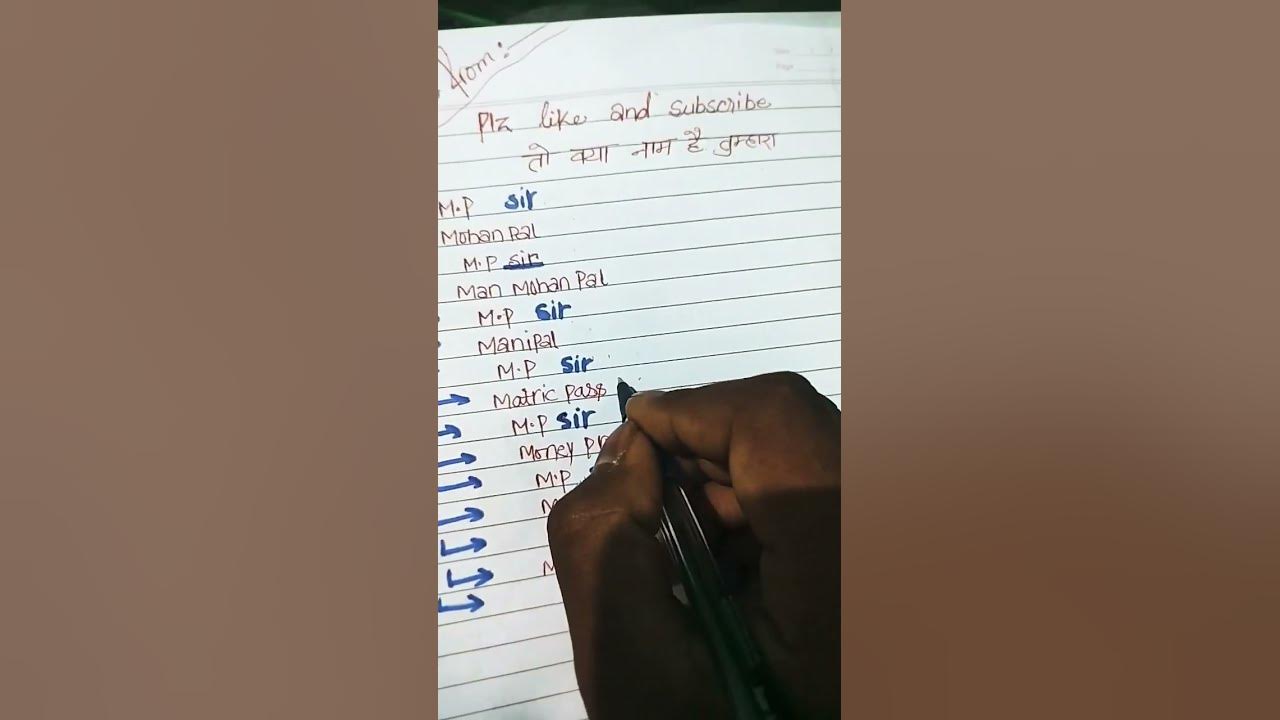 from:
Plz like and subscribe
तो क्या नाम है तुम्हारा
M.P sir
Mohan Pal
M.P sir
Man Mohan Pal
M.P sir
Manipal
M.P sir
Matric pass
M.P sir
Money
M.P